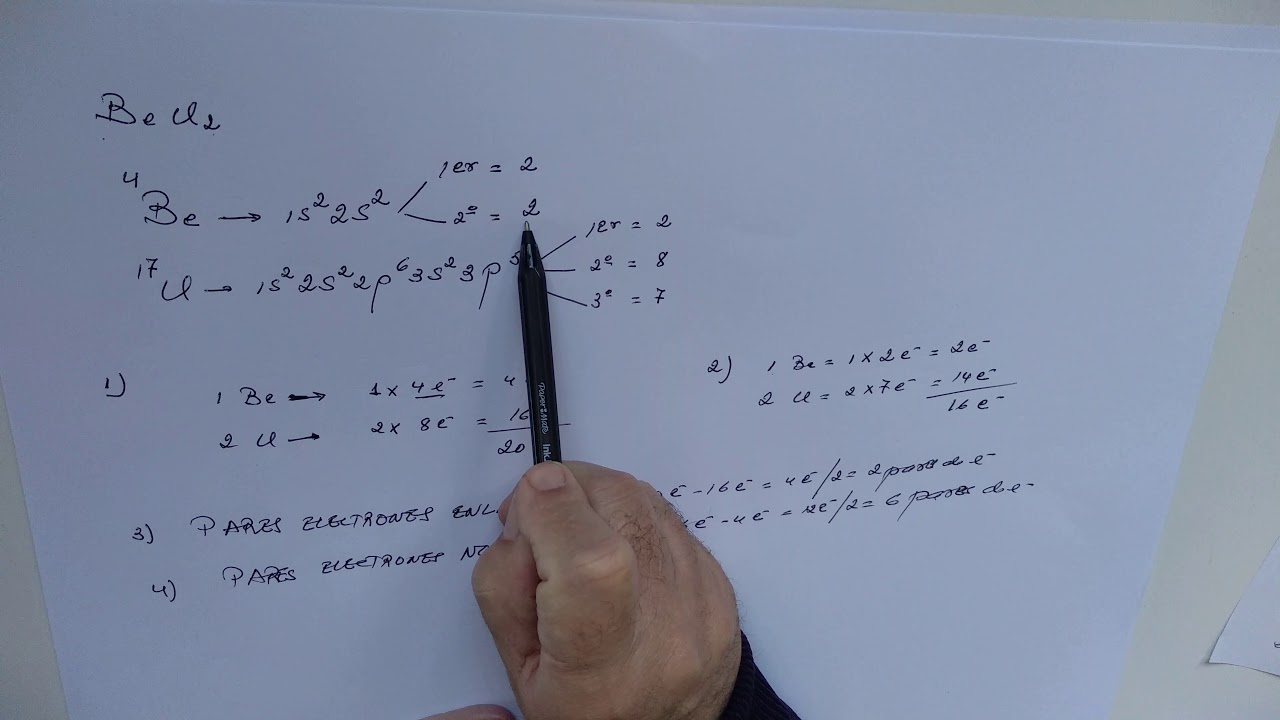 BeCl2
1er = 2
4Be → 1s² 2s²
2º = 2
1er = 2
17Cl → 1s² 2s² 2p⁶ 3s² 3p⁵
2º = 8
3º = 7
1) 1 Be → 1 x 4e⁻ = 4
2 Cl → 2 x 8e⁻ = 16
20
2) 1 Be = 1 x 2e⁻ = 2e⁻
2 Cl = 2 x 7e⁻ = 14e⁻
16e⁻
3) PARES ELECTRONES e⁻ - 16e⁻ = 4e⁻/2 = 2 pares de e⁻
4) PARES ELECTRONES e⁻ - 4e⁻ = 12e⁻/2 = 6 pares de e⁻
Paper Mate